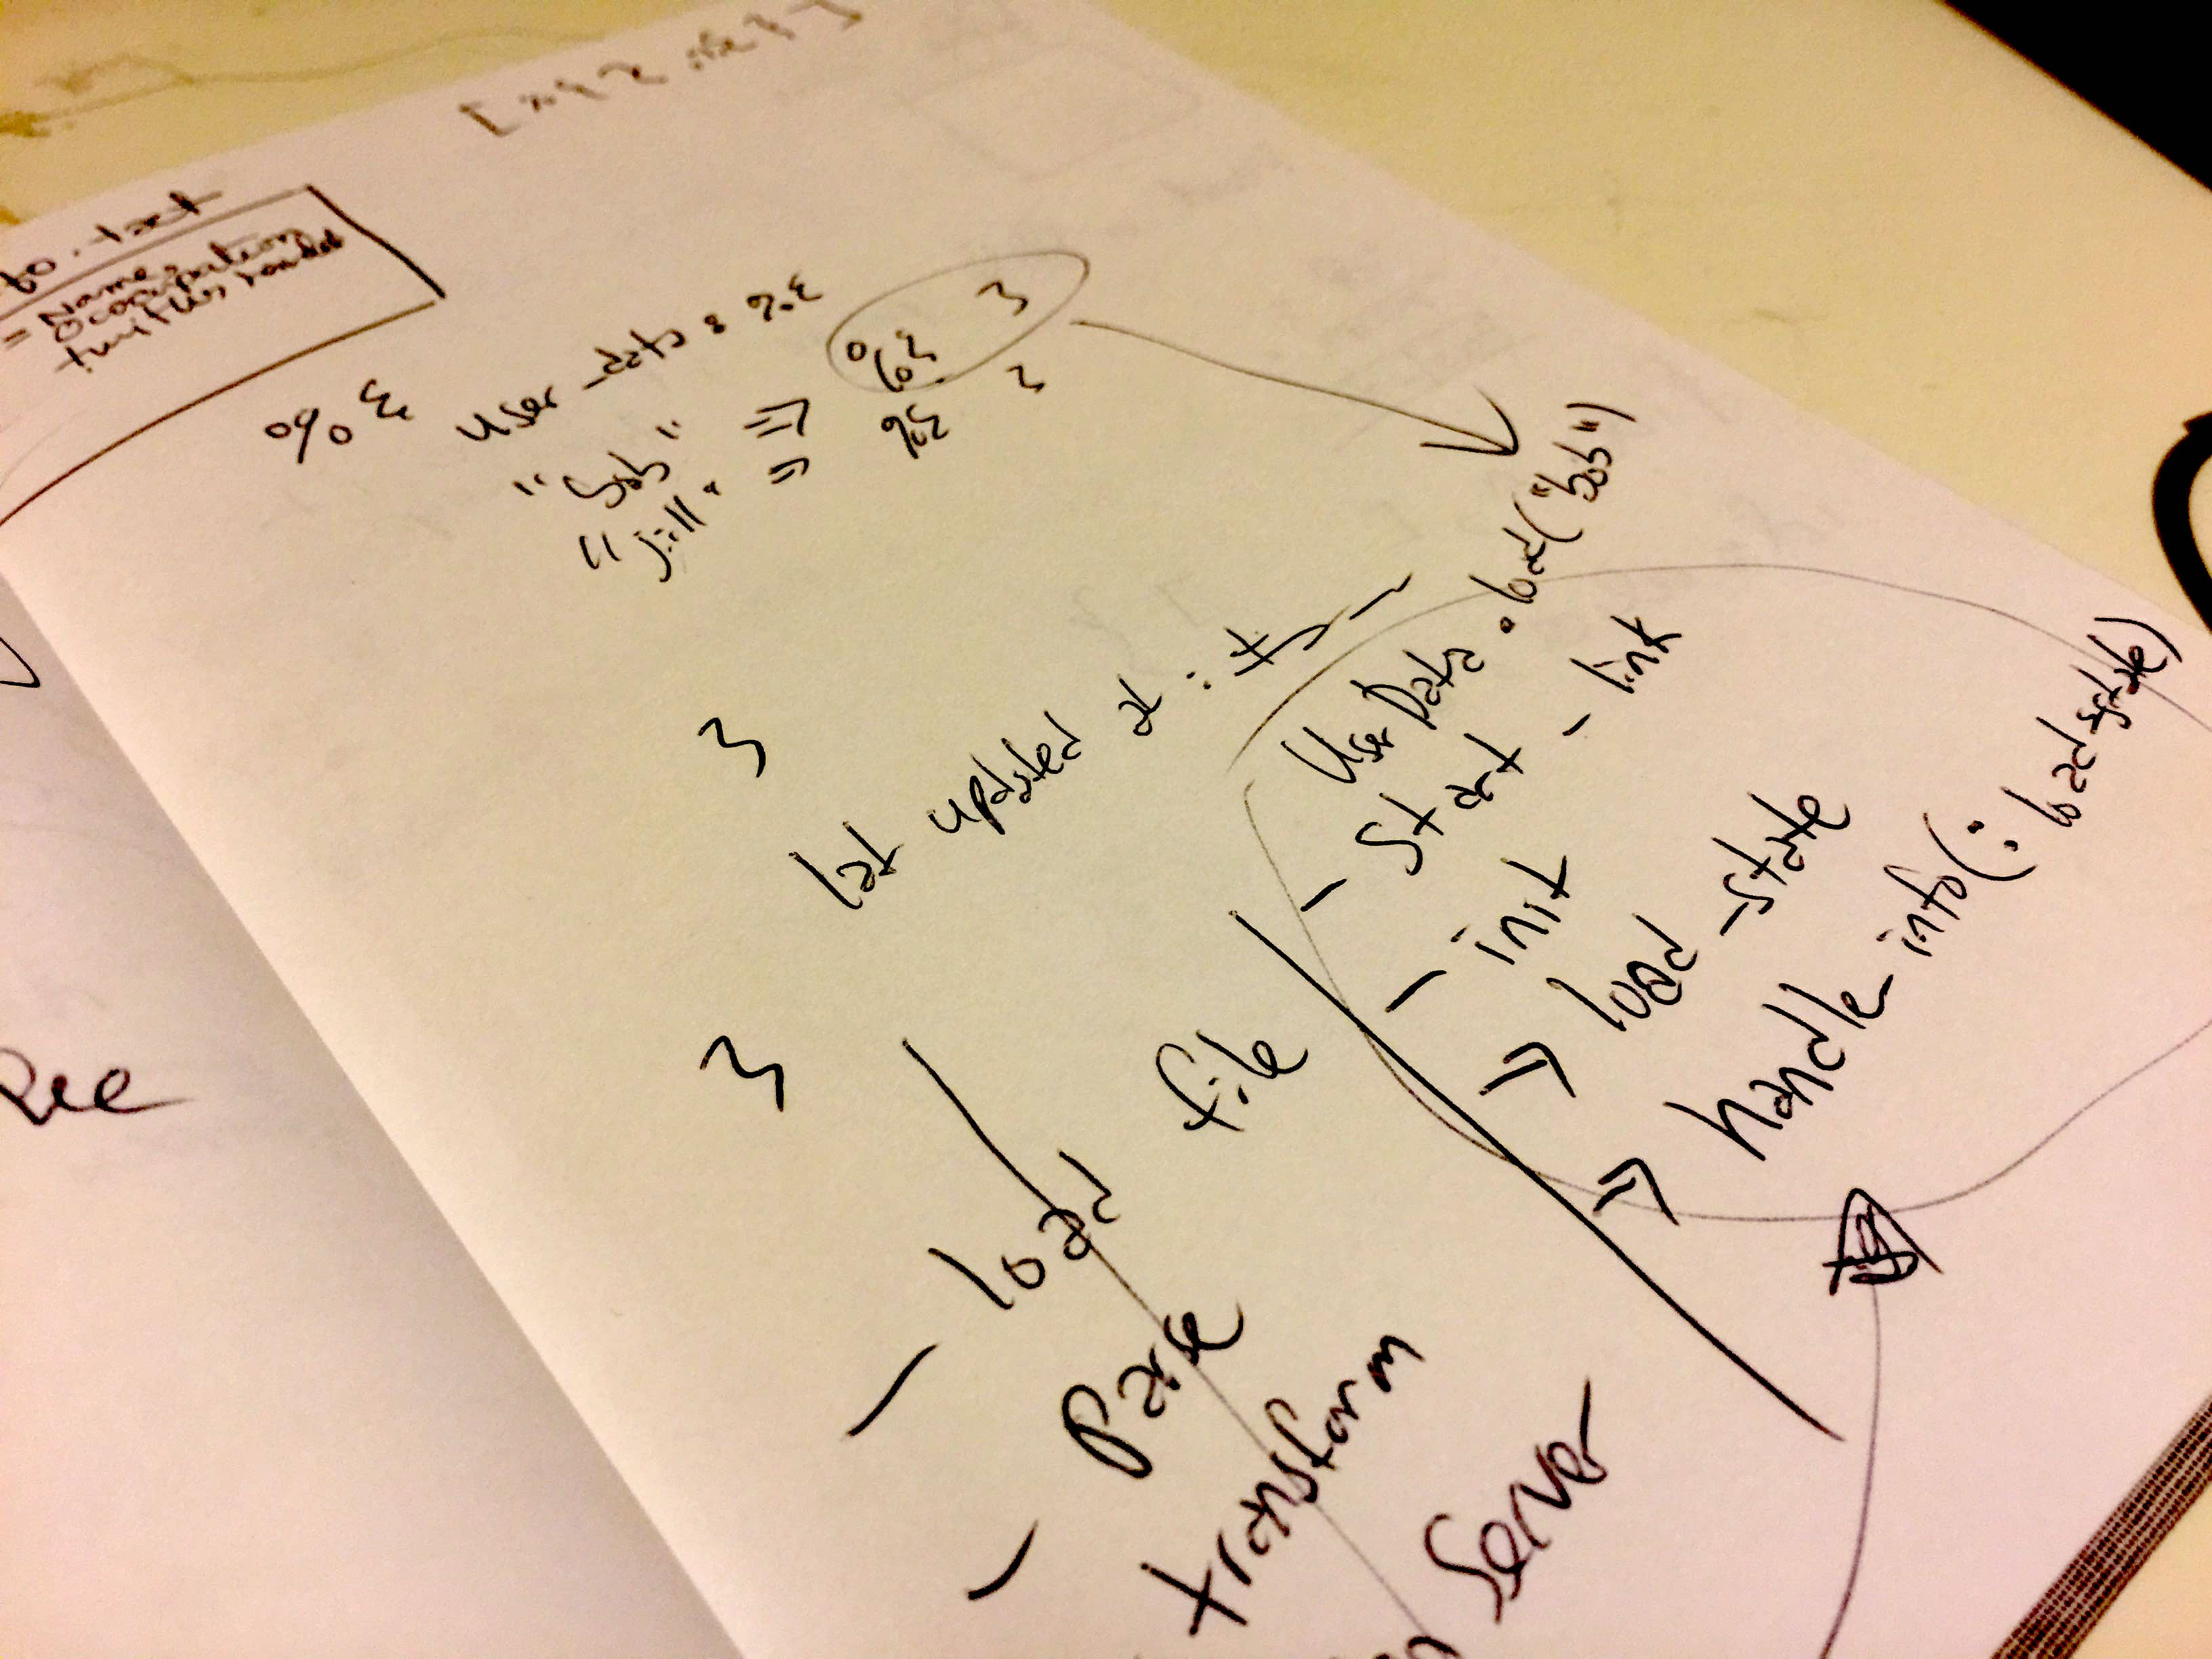 to.text
= Name
Occupation
twitter handle
%{
user_data: %{
"bob" => %{ }
"jill" => %{ }
}
last updated at: #
}
UserData.load("bob")
- start_link
- init
=> load_state
=> handle_info(:load_state)
- load file
- Parse
transform
Server